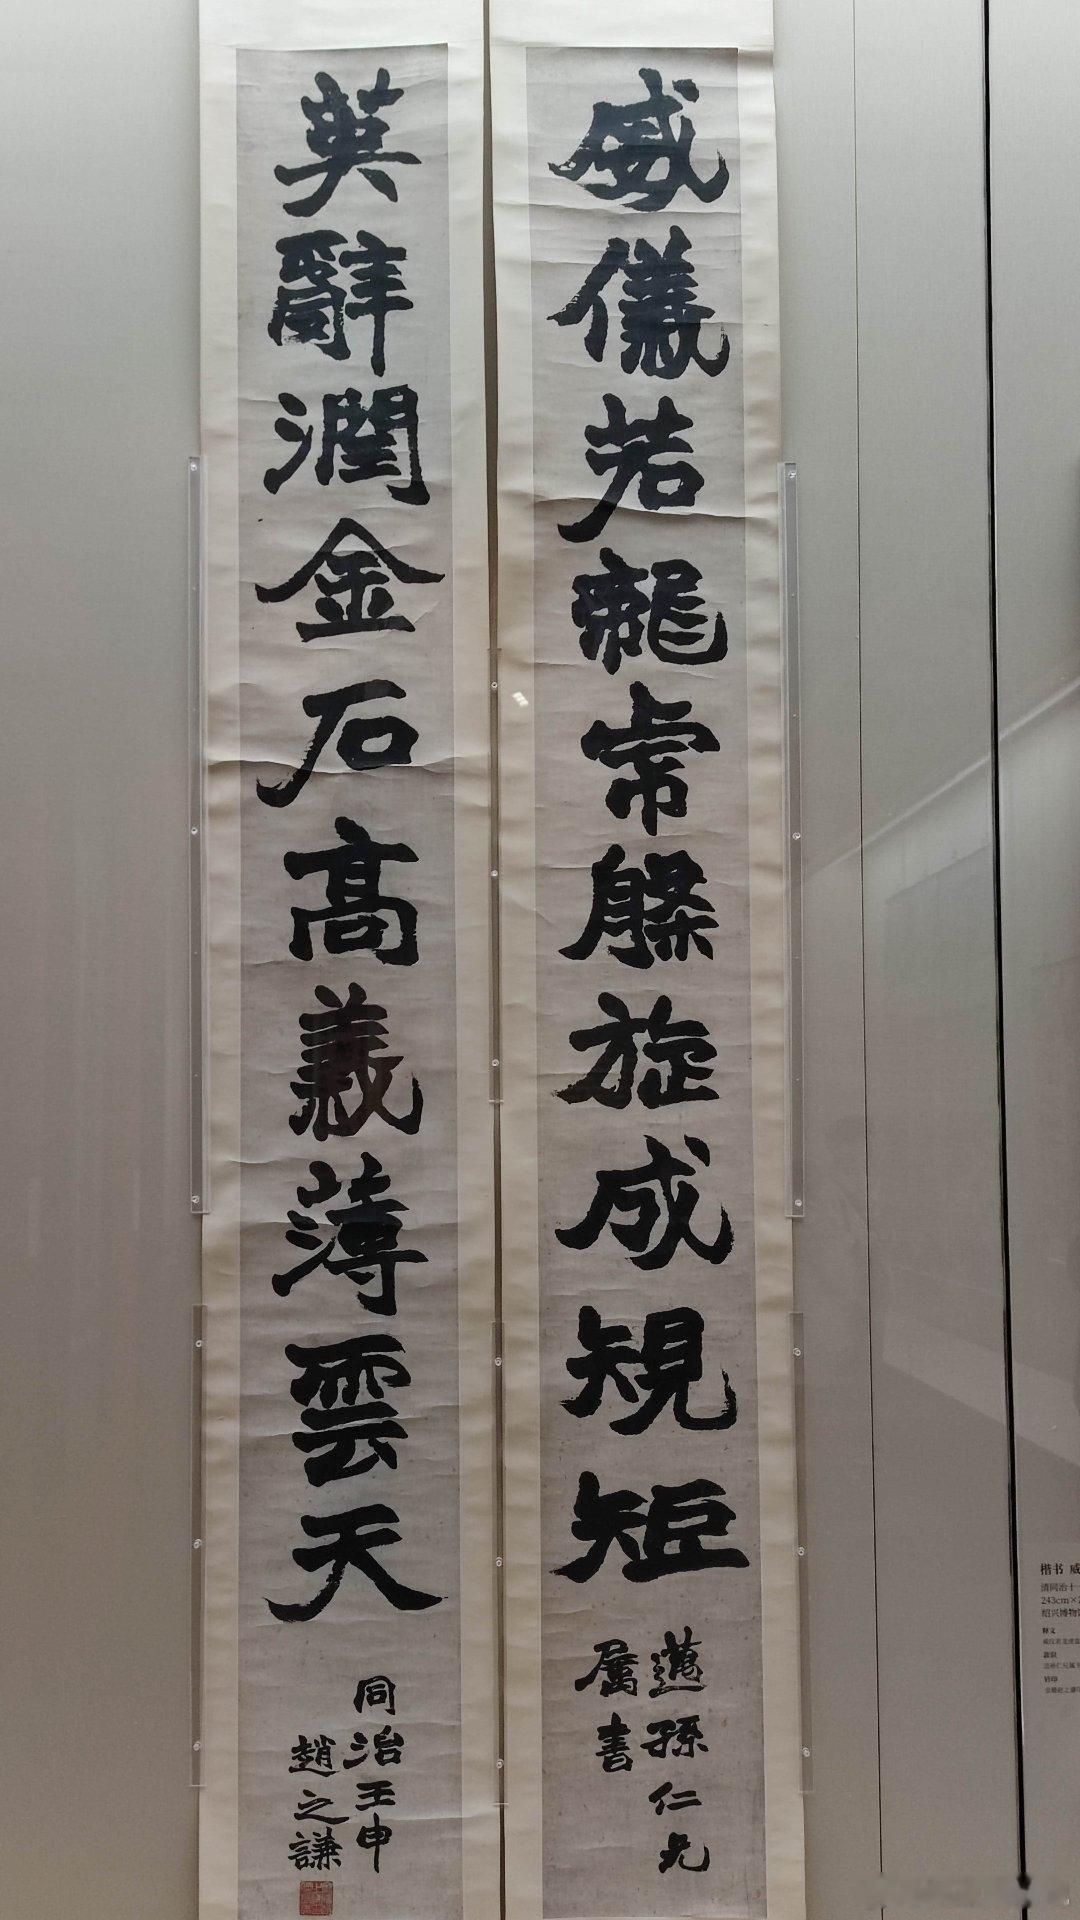 威儀若龍虎般旋成䂓矩
邁孫仁兄
屬書
英辭潤金石高義薄雲天
同治壬申
趙之謙
楷书 威
清同治十
243cm×
绍兴博物
释文
威仪若龙虎盘
款识
钤印